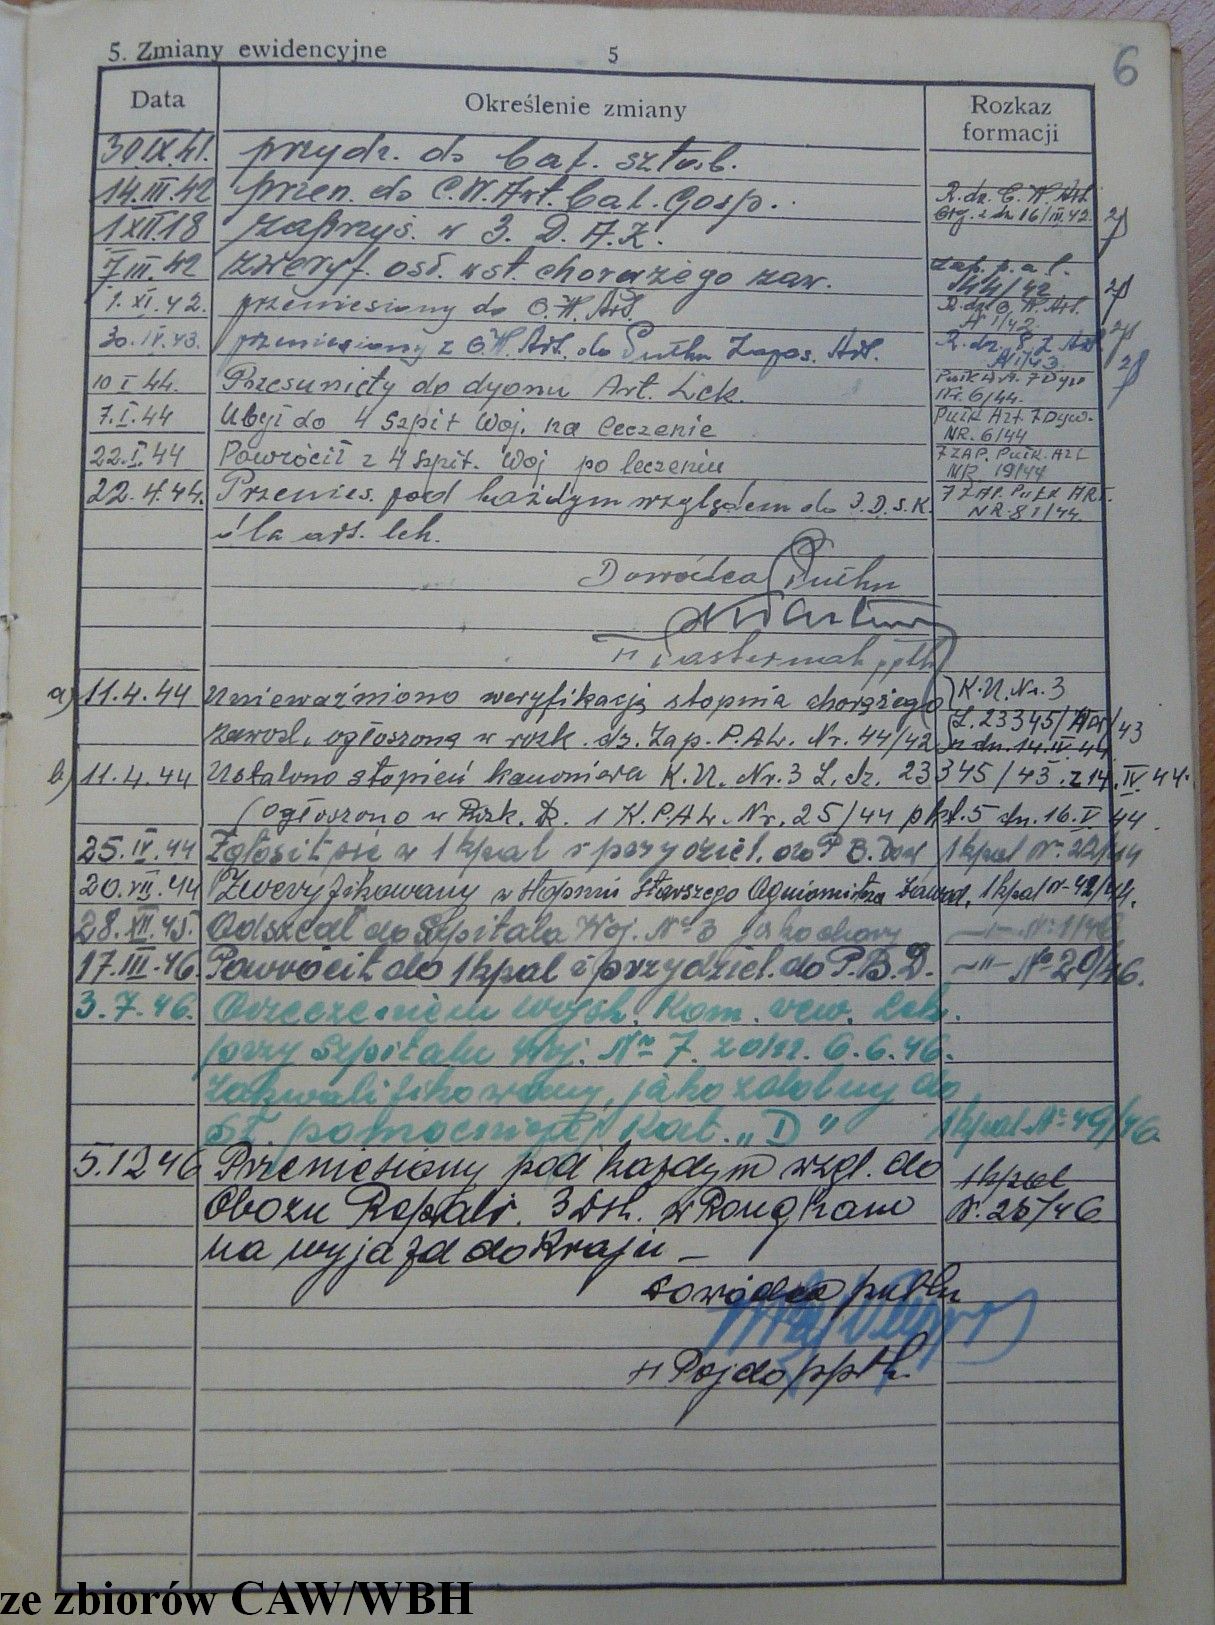 5. Zmiany ewidencyjne 5 6
Data Określenie zmiany Rozkaz formacji
30.IX.41. przydz. do bat. sztab.
14.III.42 przen. do C.W.Art. bat. Gosp. R.dz. C.W.Art.
16/III.42. 2f
1XII.18 zaprzys. w 3. D.A.K.
7 III.42 zweryf. ost. w st. chorążego zaw. zap. p.a.l.
44/42 2f
1. XI.42. przeniesiony do O.W.Art. R.dz. O.W.Art.
N 1/42
30.IV.43. przeniesiony z O.W.Art. do Pułku Zapas. Art. R.dz. 8 Z Art
N 1/43
10 I 44. Przesunięty do dyonu Art. Lek. Pułk Art. 7 Dyw
nr. 6/44.
7.I.44 Ubył do 4 Szpit Woj. na leczenie Pułk Art. 7 Dyw.
NR. 6/44
22.I.44 Powrócił z 4 szpit. Woj po leczeniu 7 ZAP. Pułk. Art
NR 19/44
22.4.44. Przenies. pod każdym względem do 3.D.S.K. 7 ZAP. Pułk ART.
NR. 81/44.
dla art. lek.
Dowódca Pułku
Pasternak ppłk
a) 11.4.44 Unieważniono weryfikację stopnia chorążego K.U. Nr. 3
L. 23345/ /43
zawod. ogłoszoną w rozk. dz. Zap. P.A.L. Nr. 44/42 z dn. 14.IV 44
b) 11.4.44 Ustalono stopień kanoniera K.U. Nr. 3 L. dz. 23345/43 z 14.IV 44.
(ogłoszono w Rozk. D. 1 K.P.A.L. Nr. 25/44 pkt. 5 dn. 16.V.44.
25.IV.44 Zgłosił się w 1 kpal i przydziel. do P.B.Dow 1 kpal Nr. 22/44
20.VII.44 Zweryfikowany w stopniu starszego Ogniomistrza Zawod. 1 kpal Nr 42/44.
28.XII.45. Odszedł do Szpitala Woj. No 3 jako chory —"— Nr 1/46.
17.III.46. Powrócił do 1 kpal i przydziel. do P.B.D. —"— No 20/46.
3.7.46. Orzeczeniem Wojsk. Kom. rew. Lek.
przy Szpitalu Woj. Nr 7. z dn. 6.6.46.
zakwalifikowany, jako zdolny do
sł. pomocniczej kat. „D" 1 kpal Nr 49/46.
5.12 46 Przeniesiony pod każdym wzgl. do 1 kpal
Obozu Repatr. 3 Dsk. w Rougham Nr. 25/46
na wyjazd do Kraju —
Dowódca pułku
Pojdo ppłk.
ze zbiorów CAW/WBH